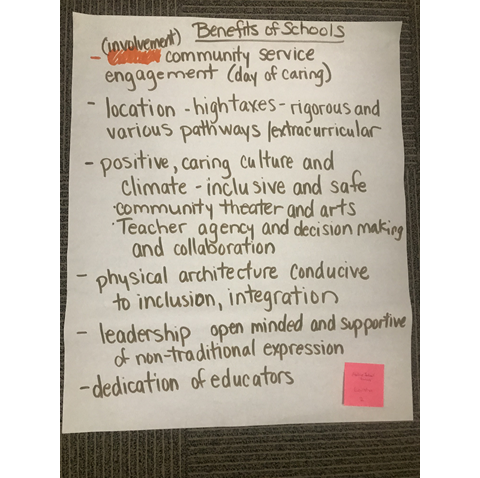 Benefits of Schools
(involvement)
- community service
engagement (day of caring)
- location - high taxes - rigorous and
various pathways /extracurricular
- positive, caring culture and
climate - inclusive and safe
·community theater and arts
·Teacher agency and decision making
and collaboration
- physical architecture conducive
to inclusion, integration
- leadership open minded and supportive
of non-traditional expression
- dedication of educators